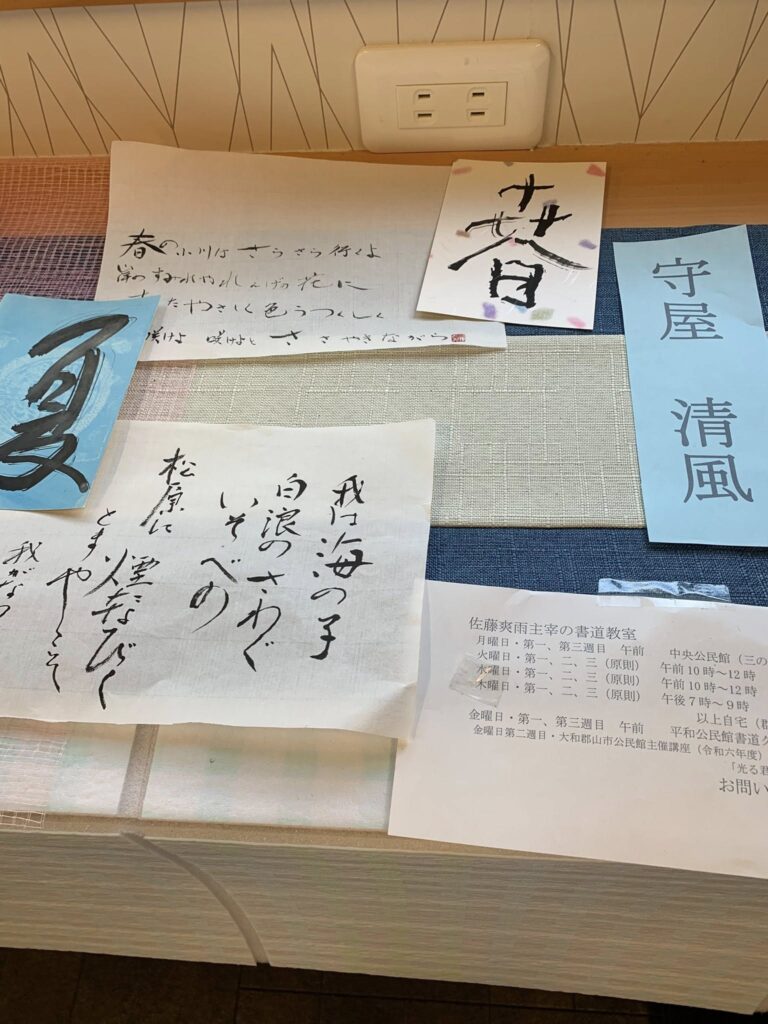 春の小川は さらさら行くよ
岸の すみれや れんげの花に
たやさしく 色うつくしく
咲けよ 咲けよと ささやきながら
春
守屋 清風
夏
我は海の子
白浪のさわぐ
いそべの
松原に
煙たなびく
とまやこそ
我がなつ
佐藤爽雨主宰の書道教室
月曜日・第一、第三週目 午前 中央公民館（三の
火曜日・第一、二、三（原則） 午前10時～12時
水曜日・第一、二、三（原則） 午前10時～12時
木曜日・第一、二、三（原則） 午後7時～9時
以上自宅（郡
金曜日・第一、第三週目 午前 平和公民館書道ク
金曜日第二週目・大和郡山市公民館主催講座（令和六年度）
「光る君
お問い